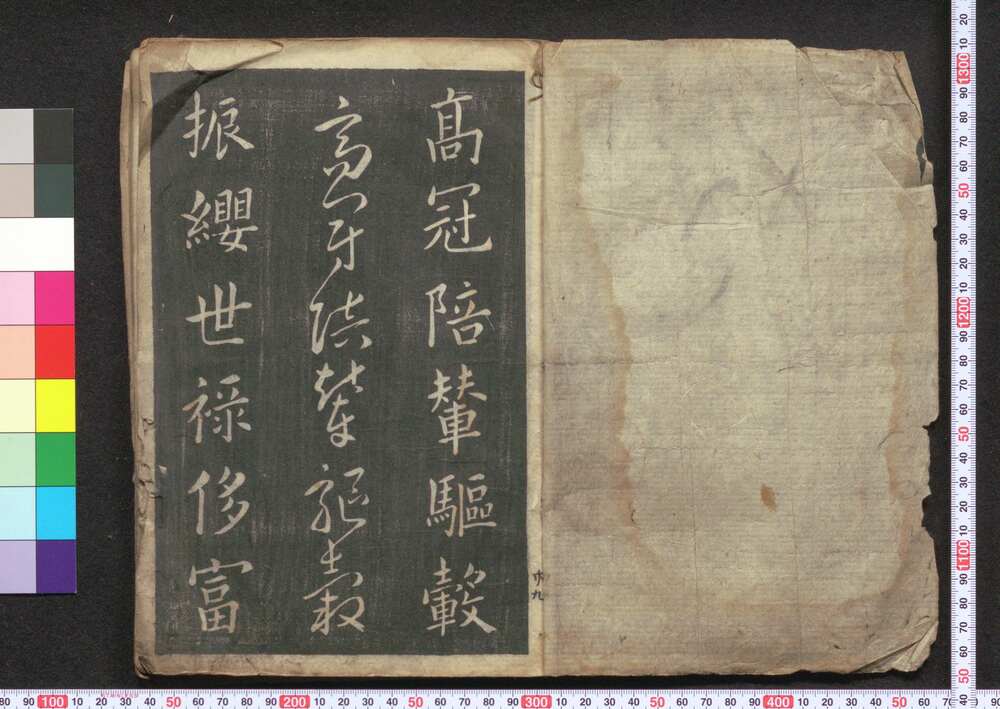 髙冠陪輦驅轂
高冠陪輦驅轂
振纓世禄侈富